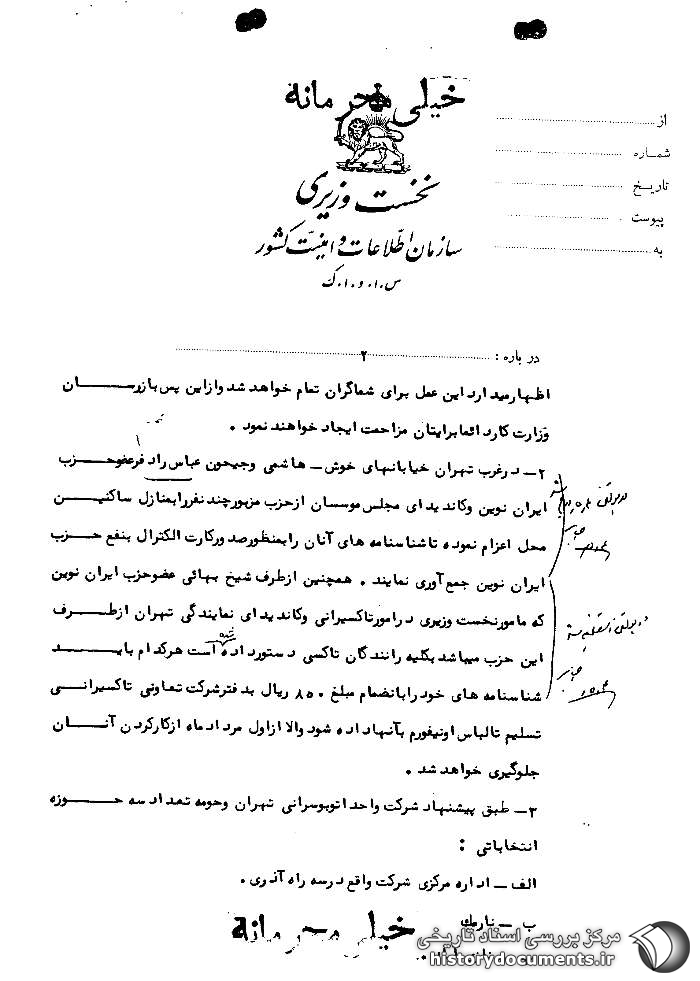 خیلی محرمانه
نخست وزیری
سازمان اطلاعات و امنیت کشور
س.ا.و.ا.ک
از
شماره
تاریخ
پیوست
به
درباره : ۲
اظهارمیدارد این عمل برای شماگران تمام خواهد شد وازاین پس بازرسان
وزارت کارد ائما برایتان مزاحمت ایجاد خواهند نمود .
۲- درغرب تهران خیابانهای خوش - هاشمی وجیحون عباس راد فرعضو حزب
ایران نوین وکاندیدای مجلس موسسان ازحزب مزبورچند نفررابمنازل ساکنین
محل اعزام نموده تا شناسنامه های آنان رابمنظورصد ورکارت الکترال بنفع حزب
ایران نوین جمع آوری نمایند . همچنین ازطرف شیخ بهائی عضوحزب ایران نوین
که مامورنخست وزیری درامورتاکسیرانی وکاندیدای نمایندگی تهران ازطرف
این حزب میباشد بکلیه رانندگان تاکسی دستورداده شده است هرکدام باید
شناسنامه های خود رابانضمام مبلغ ۸۵۰ ریال بدفترشرکت تعاونی تاکسیرانی
تسلیم تالباس اونیفورم بآنهاداده شود والا ازاول مرداد ماه ازکارکردن آنان
جلوگیری خواهد شد .
۳- طبق پیشنهاد شرکت واحد اتوبوسرانی تهران وحومه تعداد سه حوزه
انتخاباتی :
الف - اداره مرکزی شرکت واقع درسه راه آذری .
ب - نارمک
خیلی محرمانه
مرکز بررسی اسناد تاریخی
historydocuments.ir